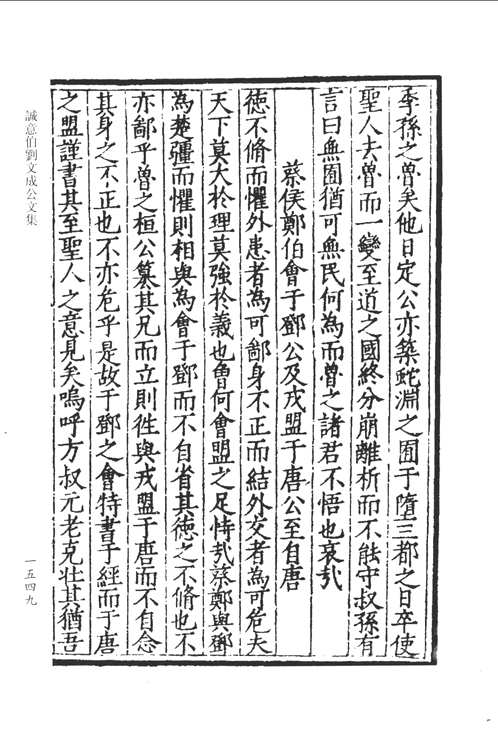 季孫之魯矣他日定公亦築蛇淵之囿于隋三都之日卒使
聖人去魯而一變至道之國終分崩離析而不能守叔孫有
言曰無囿猶可無民何為而魯之諸君不悟也哀㢤
蔡侯鄭伯會于鄧公及戎盟于唐公至自唐
徳不脩而懼外患者為可鄙身不正而結外交者為可危夫
天下莫大於理莫強於義也魯何會盟之足恃㢤蔡鄭與鄧
為楚彊而懼則相與為會于鄧而不自省其徳之不脩也不
亦鄙乎魯之桓公簒其兄而立則徃與戎盟于唐而不自念
其身之不正也不亦危乎是故于鄧之會特書于經而于唐
之盟謹書其至聖人之意見矣嗚呼方叔元老克壮其猶吾
誠意伯劉文成公文集
一五四九